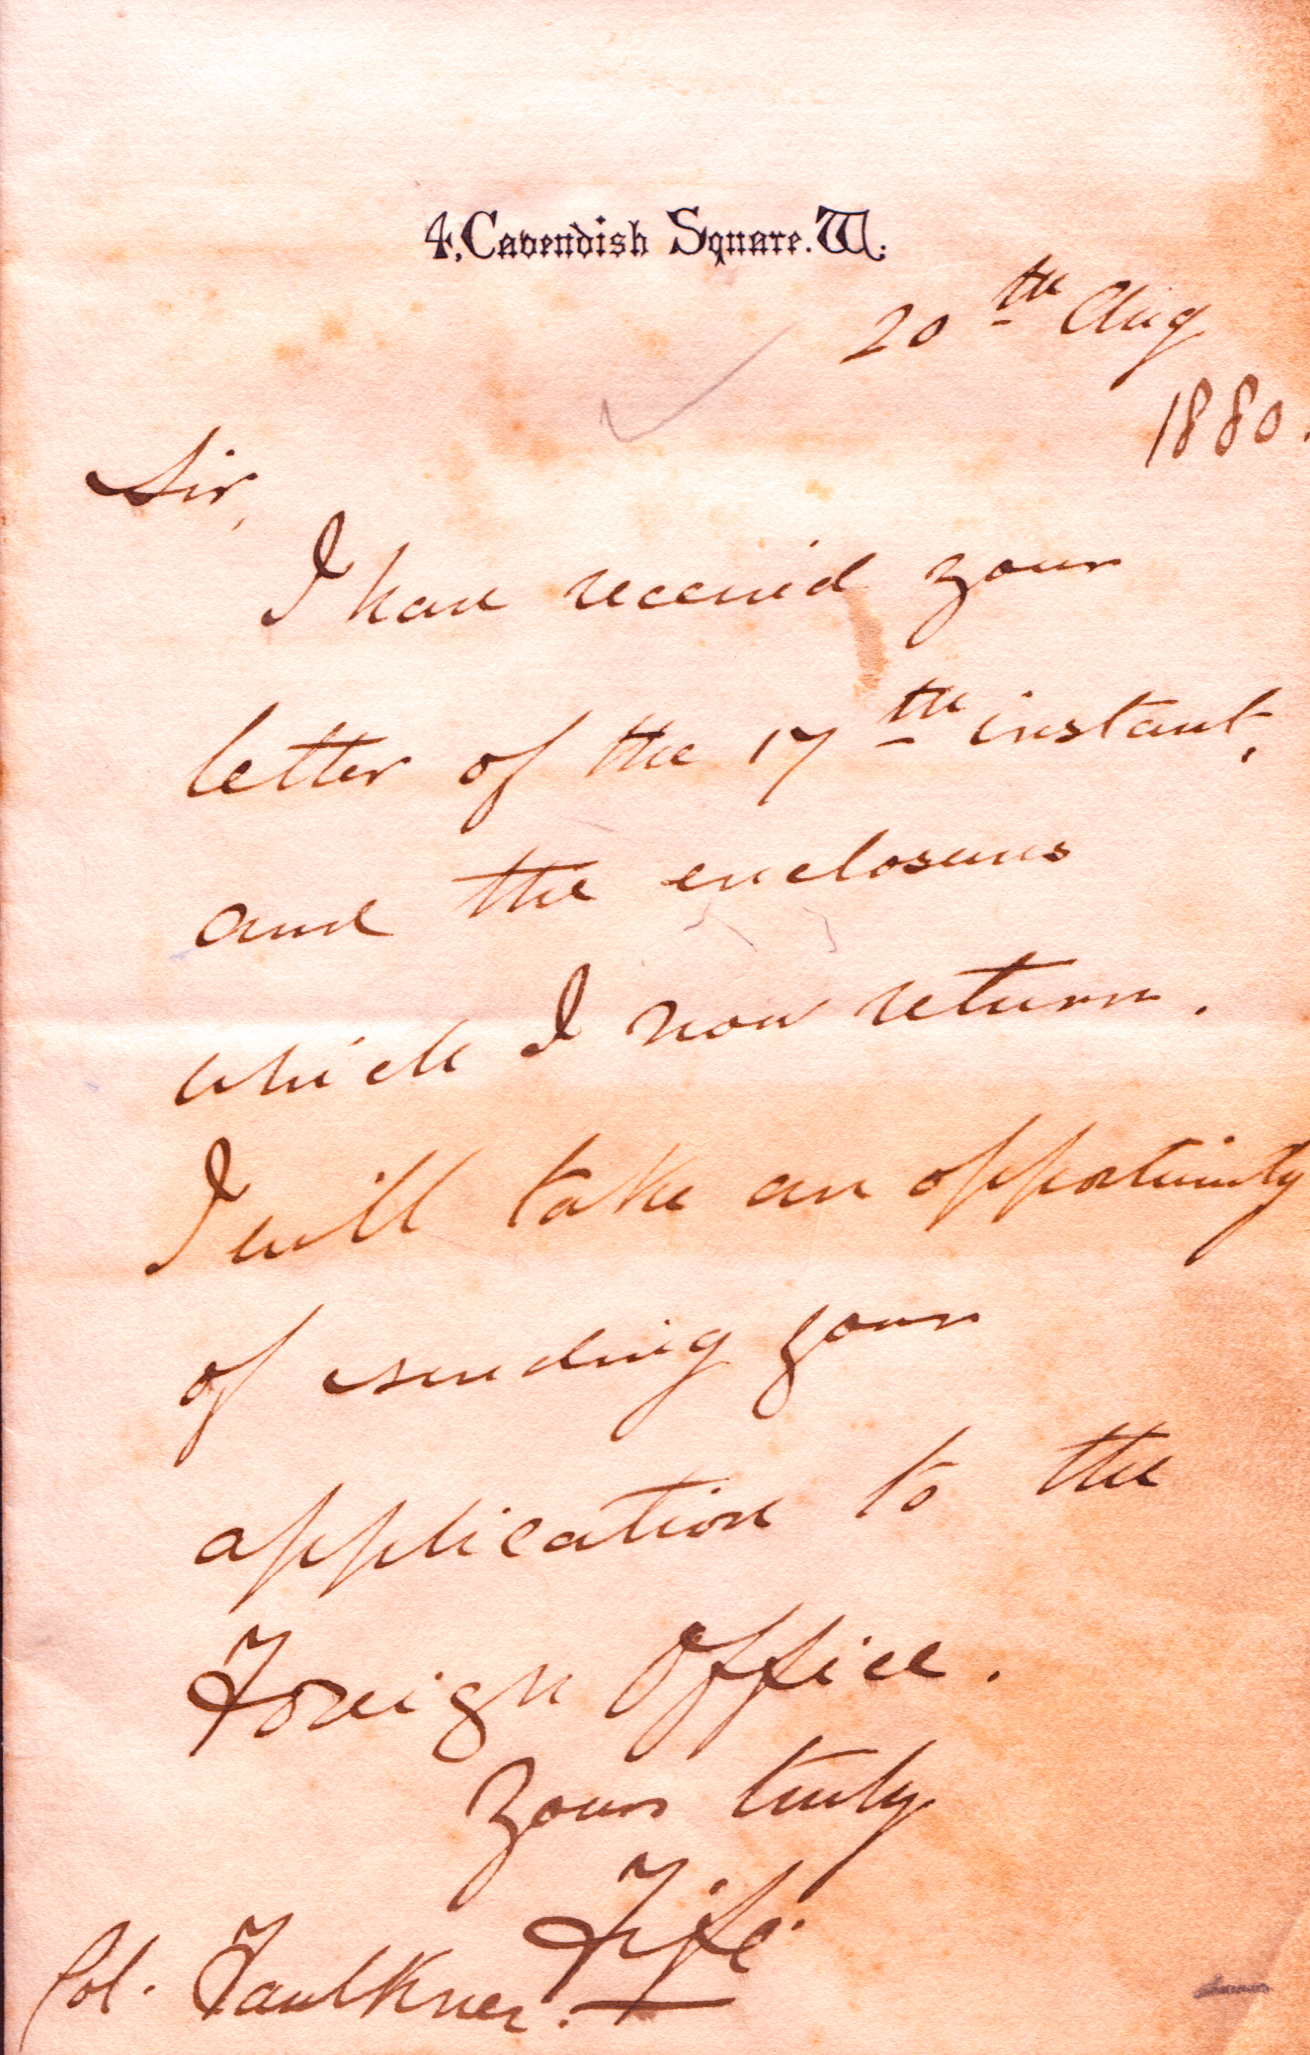 4, Cavendish Square. W.
20th Aug
1880.
Sir,
I have received your
letter of the 17th instant,
and the enclosures
which I now return.
I will take an opportunity
of sending your
application to the
Foreign Office.
Yours truly
Fife
Col. Faulkner.